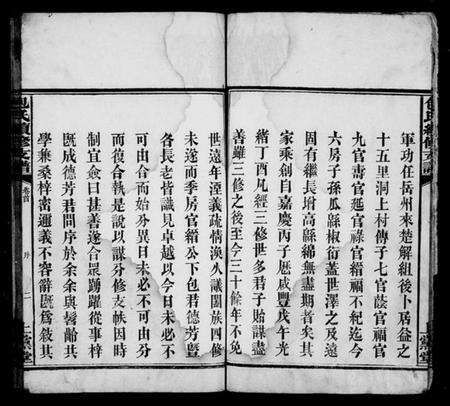 軍功任岳州來楚解組後卜居益之
十五里洞上村傳子七官蔭官福官
九官壽官綻官祿官績福不紀迄今
六房子孫瓜緜椒衍蓋世澤之長遠
固有繼長增高緜緜無盡期者矣其
家乘創自嘉慶丙子厯咸豐戊午光
緒丁酉凡經三修世多君子貽謀盡
善雖三修之後至今三十餘年不免
世遠年湮義疏情渙人議闔族四修
未遂而季房官績公下包君德芳暨
各長老皆識見卓越以今日未必不
可由合而始分異日未必不可由分
而復合執是說以謀分修支帙因時
制宜僉曰甚善遂合眾踴躍從事梓
既成德芳君問序於余余與唇齒其
學兼桑梓密邇義不容辭旣為敘其
包氏續修支譜
卷首
序
二
上黨堂